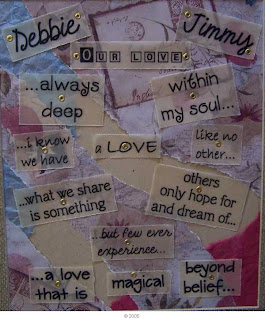 Debbie
Jimmy
OUR LOVE
...always
deep
within
my soul...
...i know
we have
a LOVE
like no
other...
...what we share
is something
others
only hope for
and dream of...
...but few ever
experience...
...a love
that is
magical
beyond
belief...